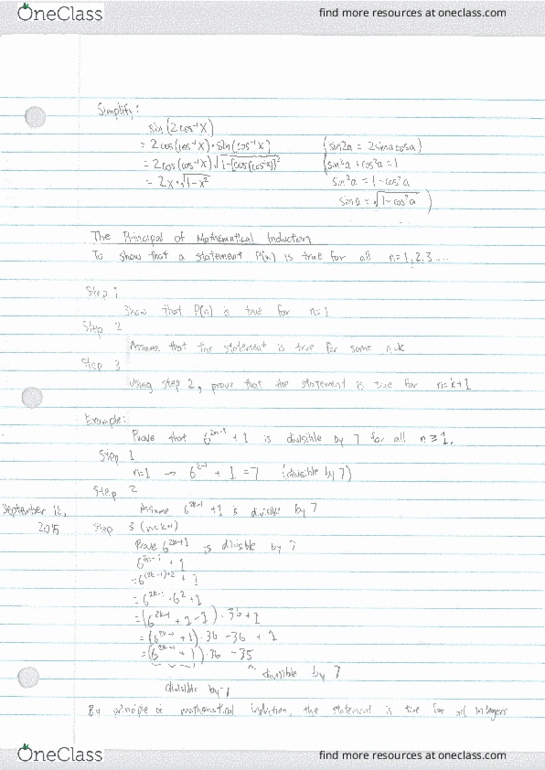 OneClass
find more resources at oneclass.com
Simplify:
sin(2cos⁻¹x)
= 2cos(cos⁻¹x)·sin(cos⁻¹x) (sin2a = 2sinacosa)
= 2cos(cos⁻¹x)√1-[cos(cos⁻¹x)]² (sin²a+cos²a=1
= 2x·√1-x² sin²a = 1-cos²a
sina = √1-cos²a )
The Principal of Mathematical Induction
To show that a statement P(n) is true for all n=1,2,3....
Step 1
Show that P(n) is true for n=1
Step 2
Assume that the statement is true for some n=k
Step 3
Using step 2, prove that the statement is true for n=k+1
Example:
Prove that 6²ⁿ⁻¹ + 1 is divisible by 7 for all n≥1.
Step 1
n=1 → 6²⁻¹ + 1 = 7 (divisible by 7)
Step 2
September 16,
2015
Assume 6²ᵏ⁻¹ +1 is divisible by 7
Step 3 (n=k+1)
Prove 6²ᵏ⁺¹ is divisible by 7
+ 1
= 6⁽²ᵏ⁻¹⁾⁺² + 1
= 6²ᵏ⁻¹·6²+1
= (6²ᵏ⁻¹ + 1-1)·36+1
= (6²ᵏ⁻¹+1)·36-36 + 1
= (6²ᵏ⁻¹+1)·36 -35
divisible by 7
divisible by 7
By principle of mathematical induction, the statement is true for all integers
OneClass
find more resources at oneclass.com